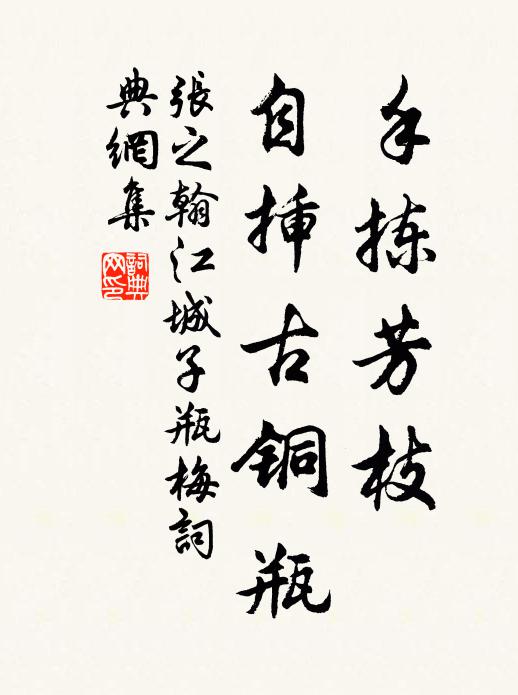 手拣芳枝
自插古铜瓶
張之翰江城子瓶梅詞
典網集
詞典網印